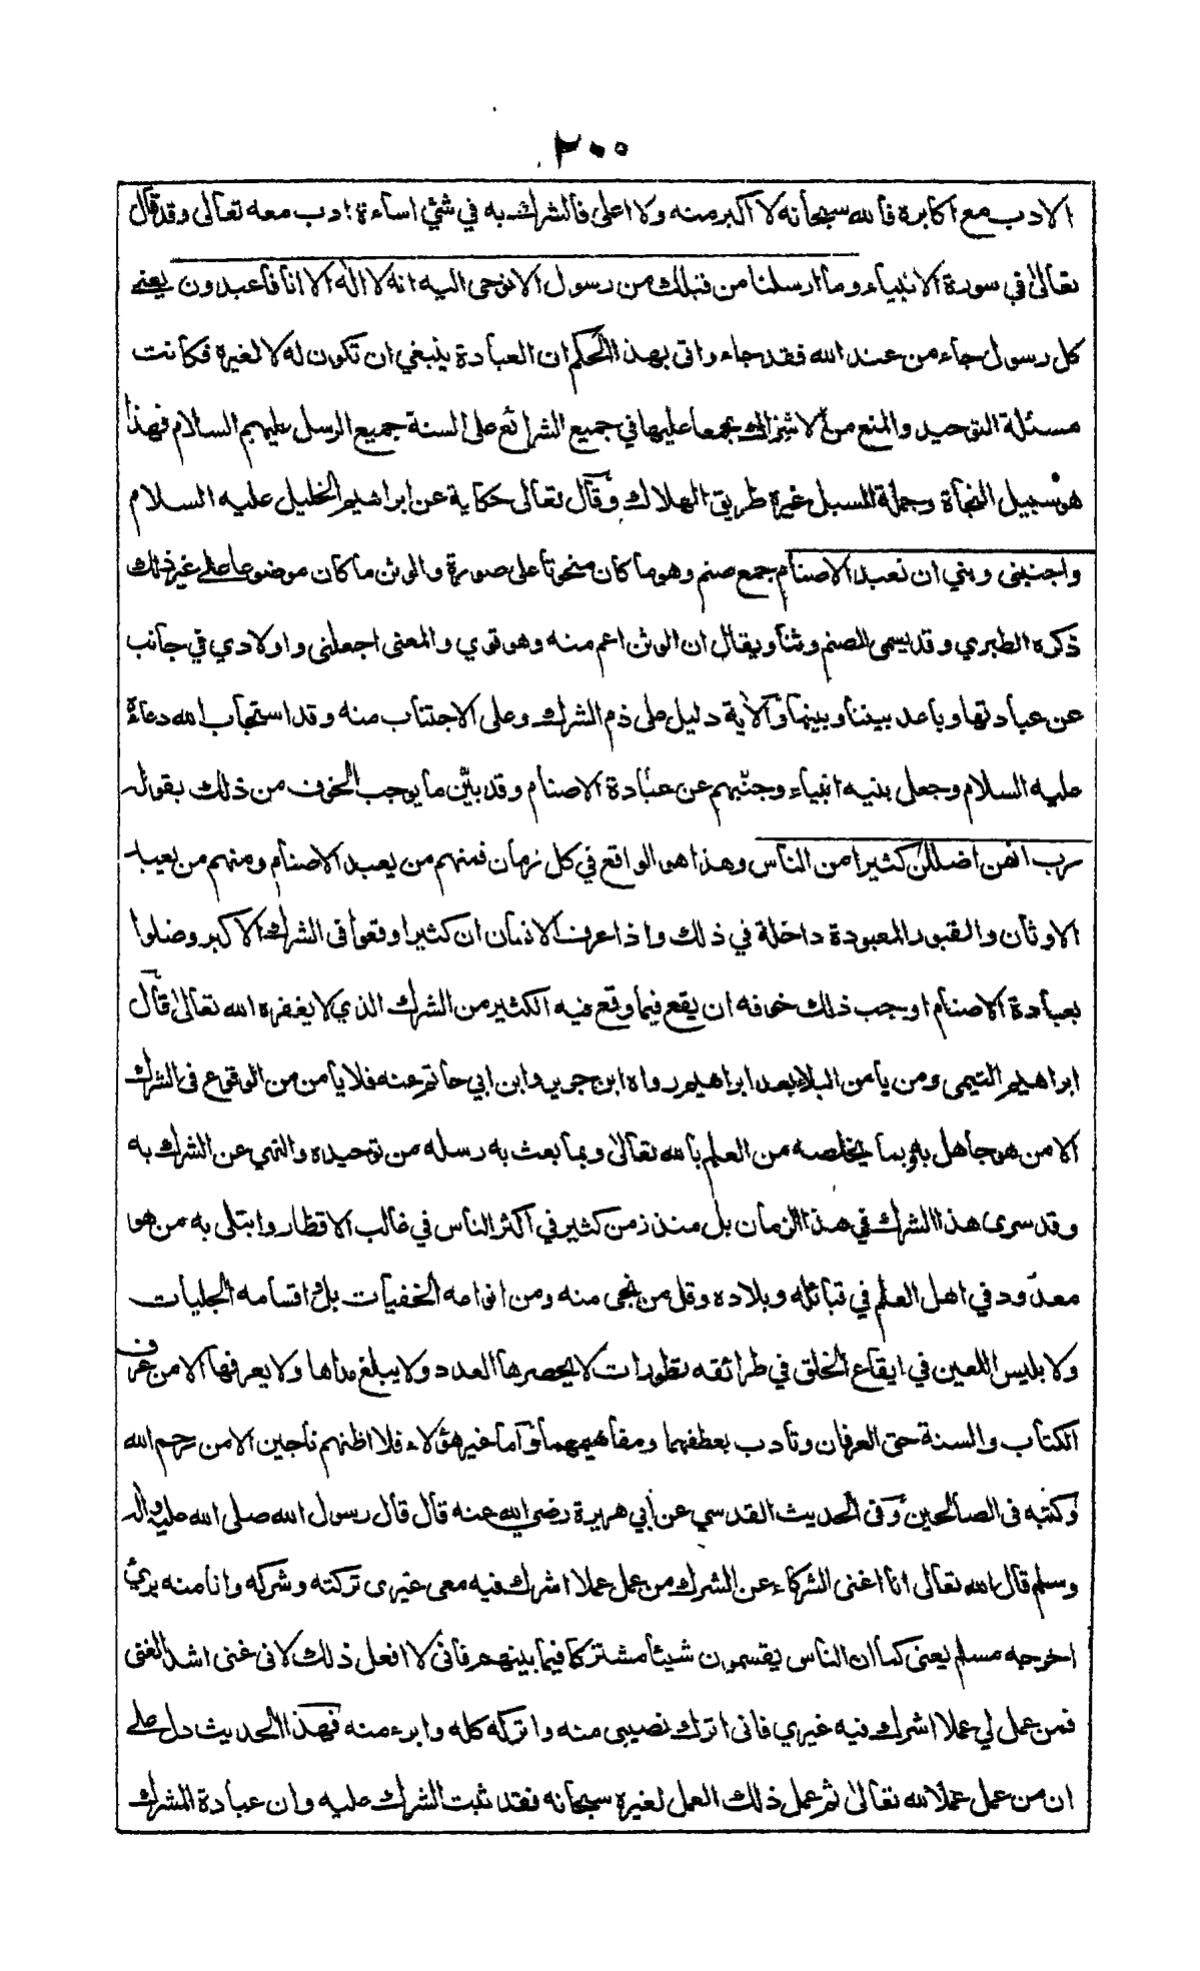 ٢٠٠
الادب مع اكابره فالله سبحانه لا اكبر منه ولا اعلى فالشرك به في شئ اساءة ادب معه تعالى وقد قال
تعالى في سورة الانبياء وما ارسلنا من قبلك من رسول الا نوحى اليه انه لا اله الا انا فاعبدون يعنى
كل رسول جاء من عند الله فقد جاء واتى بهذا الحكم ان العبادة ينبغي ان تكون له لا لغيره فكانت
مسئلة التوحيد والمنع من الاشراك مجمعا عليها في جميع الشرائع على السنة جميع الرسل عليهم السلام فهذا
هو سبيل النجاة وجملة السبل غيره طريق الهلاك وقال تعالى حكاية عن ابراهيم الخليل عليه السلام
واجنبنى وبني ان نعبد الاصنام جمع صنم وهو ما كان منحوتا على صورة والوثن ما كان موضوعا على غير ذلك
ذكره الطبري وقد يسمى الصنم وثنا ويقال ان الوثن اعم منه وهو قوي والمعنى اجعلنى واولادي في جانب
عن عبادتها وباعد بيننا وبينها والآية دليل على ذم الشرك وعلى الاجتناب منه وقد استجاب الله دعاءه
عليه السلام وجعل بنيه انبياء وجنّبهم عن عبادة الاصنام وقد بيّن ما يوجب الخوف من ذلك بقوله
رب انهن اضللن كثيرا من الناس وهذا هو الواقع في كل زمان فمنهم من يعبد الاصنام ومنهم من يعبد
الاوثان والقبور المعبودة داخلة في ذلك واذا عرف الانسان ان كثيرا وقعوا فى الشرك الاكبر وضلوا
بعبادة الاصنام اوجب ذلك خوفه ان يقع فيما وقع فيه الكثير من الشرك الذي لا يغفره الله تعالى قال
ابراهيم التيمى ومن يأمن البلاء بعد ابراهيم رواه ابن جرير وابن ابي حاتم عنه فلا يأمن من الوقوع فى الشرك
الا من هو جاهل به وبما يخلصه من العلم بالله تعالى وبما بعث به رسله من توحيده والنهي عن الشرك به
وقد سرى هذا الشرك في هذا الزمان بل منذ زمن كثير في اكثر الناس في غالب الاقطار وابتلى به من هو
معدود في اهل العلم في قبائله وبلاده وقل من نجى منه ومن انواعه الخفيات بل واقسامه الجليات
ولابليس اللعين في ايقاع الخلق في طرائقه تطورات لا يحصرها العدد ولا يبلغ مداها ولا يعرفها الا من عرف
الكتاب والسنة حق العرفان وتأدب بعطفهما ومفاهيمهما واما غير هؤلاء فلا اظنهم ناجين الا من رحم الله
وكتبه فى الصالحين وفى الحديث القدسي عن أبي هريرة رضي الله عنه قال قال رسول الله صلى الله عليه واله
وسلم قال الله تعالى انا اغنى الشركاء عن الشرك من عمل عملا اشرك فيه معى غيرى تركته وشركه وانا منه بريئ
اخرجه مسلم يعنى كما ان الناس يقسمون شيئا مشتركا فيما بينهم فانى لا افعل ذلك لانى غنى اشد الغنى
فمن عمل لي عملا اشرك فيه غيري فانى اترك نصيبى منه واتركه كله وابرء منه فهذا الحديث دل على
ان من عمل عملا لله تعالى ثم عمل ذلك العمل لغيره سبحانه فقد ثبت الشرك عليه وان عبادة المشرك